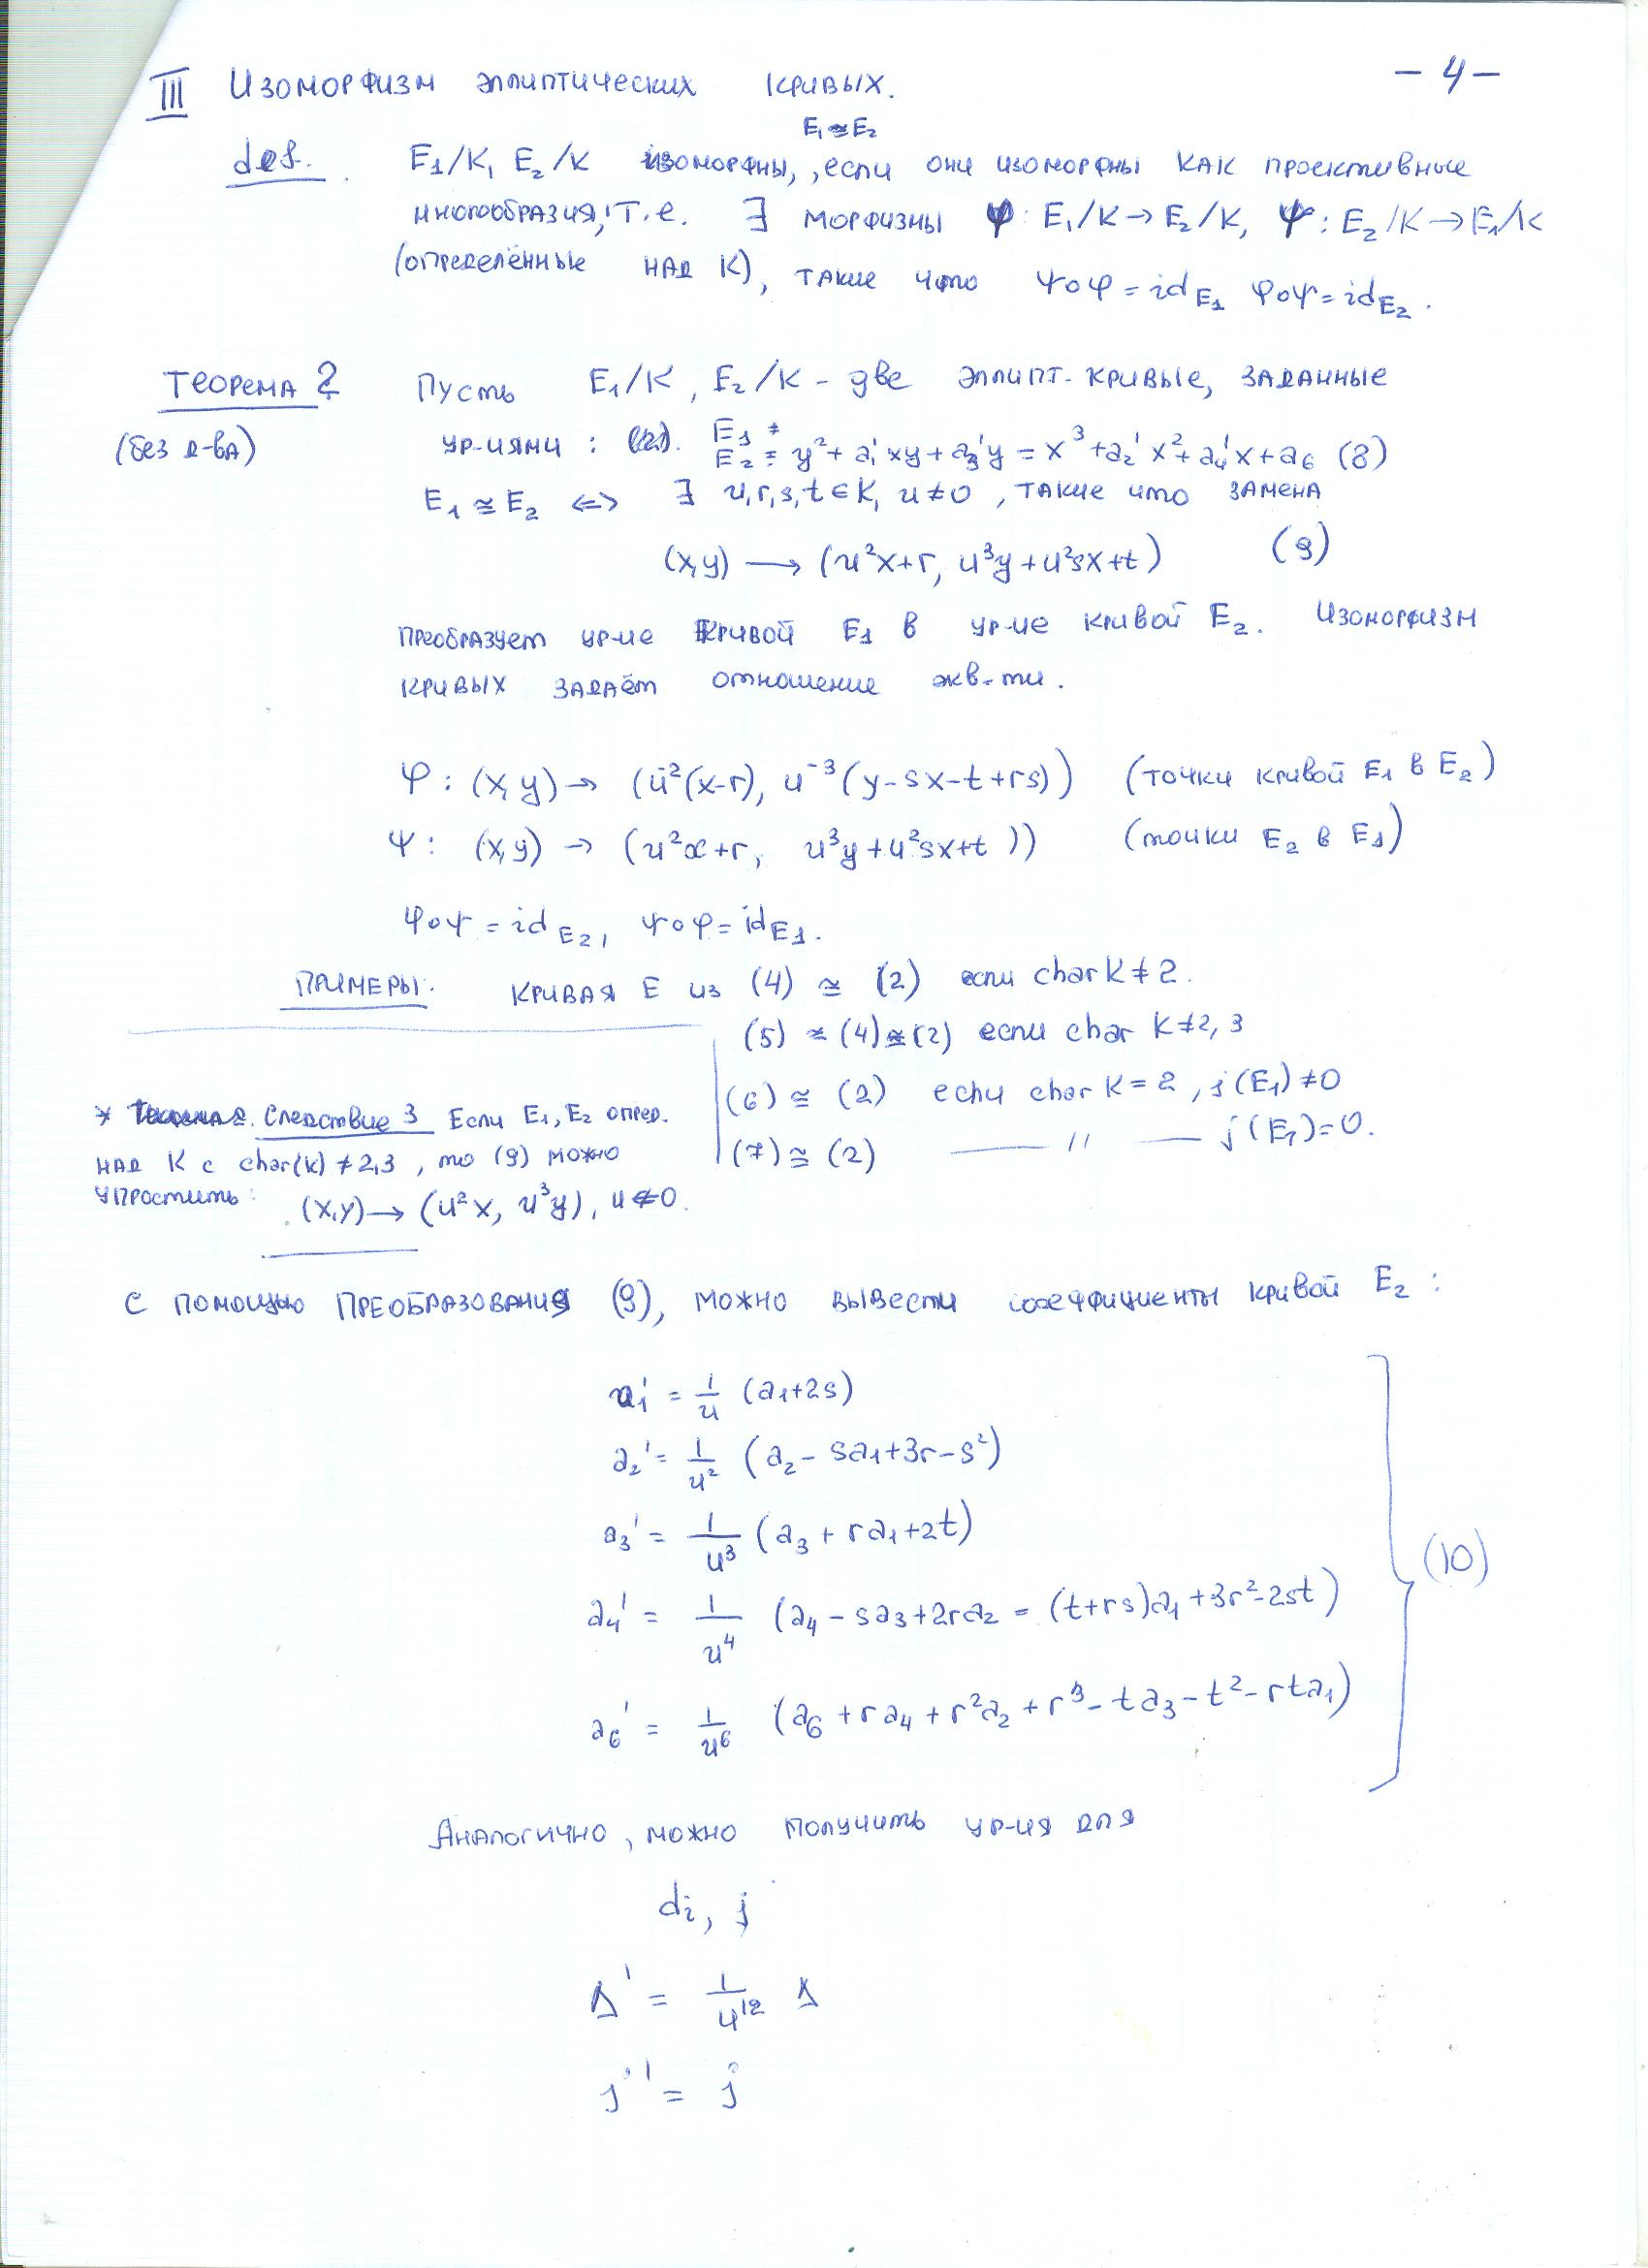 III Изоморфизм эллиптических кривых. – 4 –
E₁ ≅ E₂
def. E₁/K, E₂/K изоморфны, , если они изоморфны как проективные
многообразия, т.е. ∃ морфизмы φ: E₁/K → E₂/K, ψ: E₂/K → E₁/K
(определённые над K), такие что ψ∘φ = id_E₁ φ∘ψ = id_E₂.
Теорема 2 Пусть E₁/K, E₂/K – две эллипт. кривые, заданные
(без д-ва) ур-иями: (2). E₁:
E₂: y² + a₁'xy + a₃'y = x³ + a₂'x² + a₄'x + a₆ (8)
E₁ ≅ E₂ ⇔ ∃ u,r,s,t ∈ K, u ≠ 0, такие что замена
(x,y) → (u²x+r, u³y+u²sx+t) (9)
преобразует ур-ие кривой E₁ в ур-ие кривой E₂. Изоморфизм
кривых задаёт отношение экв-ти.
φ: (x,y) → (u⁻²(x-r), u⁻³(y-sx-t+rs)) (точки кривой E₁ в E₂)
ψ: (x,y) → (u²x+r, u³y+u²sx+t)) (точки E₂ в E₁)
φ∘ψ = id_E₂, ψ∘φ = id_E₁.
Примеры: кривая E из (4) ≅ (2) если char K ≠ 2.
(5) ≅ (4) ≅ (2) если char K ≠ 2, 3
(6) ≅ (2) если char K = 2, j(E₁) ≠ 0
(7) ≅ (2) — // — j(E₁) = 0.
* Следствие 3 Если E₁, E₂ опред.
над K с char(K) ≠ 2,3, то (9) можно
упростить:
(x,y) → (u²x, u³y), u ≠ 0.
С помощью преобразования (9), можно вывести коэффициенты кривой E₂:
a₁' = 1/u (a₁+2s)
a₂' = 1/u² (a₂ - sa₁ + 3r - s²)
a₃' = 1/u³ (a₃ + ra₁ + 2t)
(10)
a₄' = 1/u⁴ (a₄ - sa₃ + 2ra₂ - (t+rs)a₁ + 3r² - 2st)
a₆' = 1/u⁶ (a₆ + ra₄ + r²a₂ + r³ - ta₃ - t² - rta₁)
Аналогично, можно получить ур-ия для
dᵢ, j
Δ' = 1/u¹² Δ
j' = j